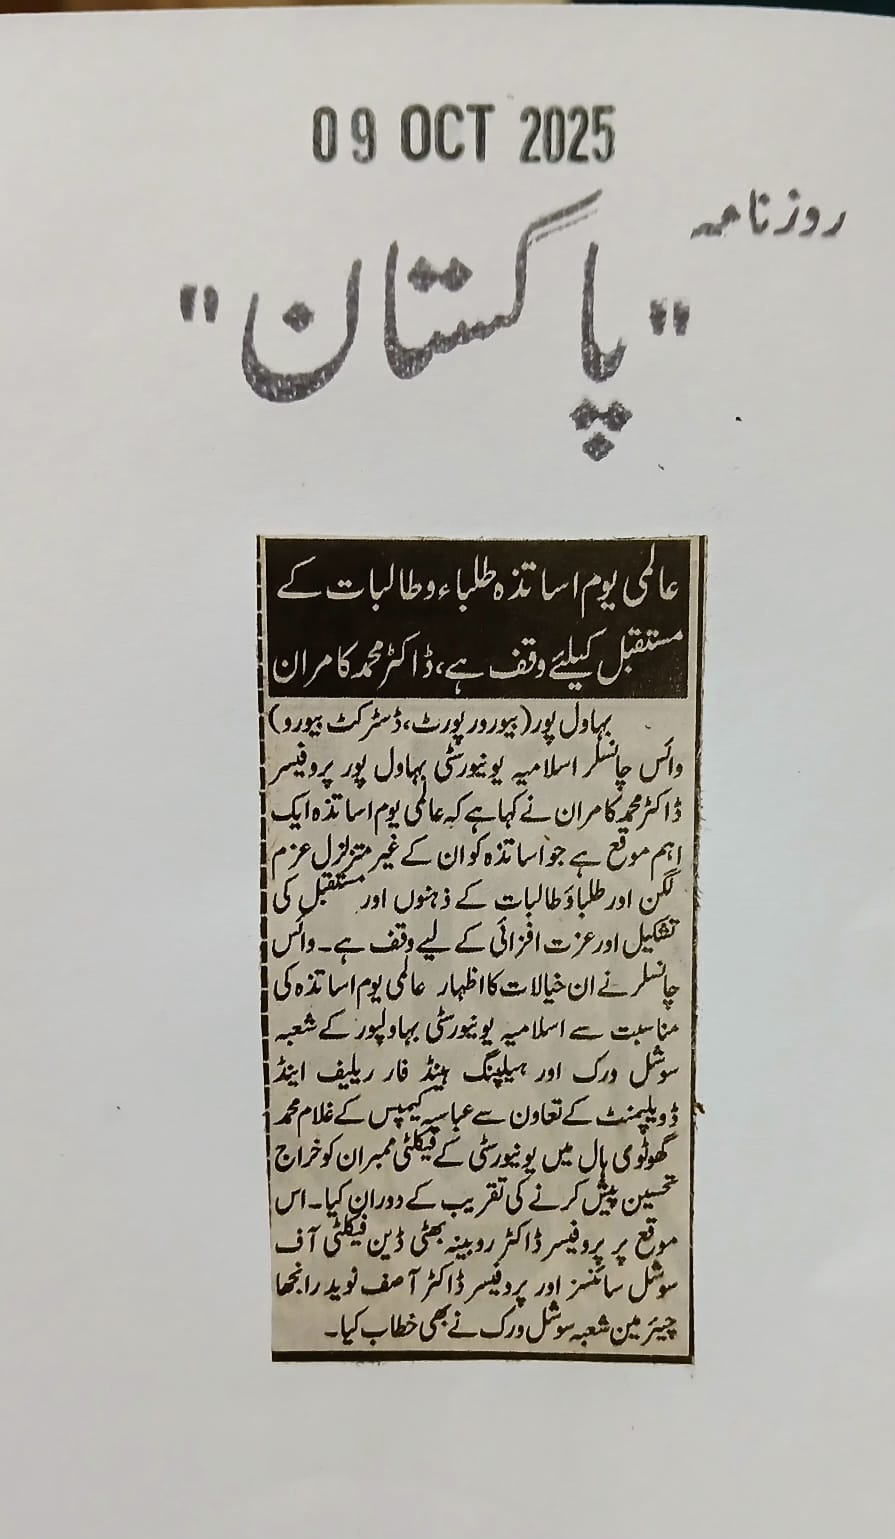 09 OCT 2025
روزنامہ
"پاکستان"
عالمی یوم اساتذہ طلباء و طالبات کے
مستقبل کیلئے وقف ہے، ڈاکٹر محمد کامران
بہاول پور (بیورورپورٹ، ڈسٹرکٹ بیورو)
وائس چانسلر اسلامیہ یونیورسٹی بہاول پور پروفیسر
ڈاکٹر محمد کامران نے کہا ہے کہ عالمی یوم اساتذہ ایک
اہم موقع ہے جو اساتذہ کو ان کے غیر متزلزل عزم
لگن اور طلباؤ طالبات کے ذہنوں اور مستقبل کی
تشکیل اور عزت افزائی کے لیے وقف ہے۔ وائس
چانسلر نے ان خیالات کا اظہار عالمی یوم اساتذہ کی
مناسبت سے اسلامیہ یونیورسٹی بہاولپور کے شعبہ
سوشل ورک اور ہیلپنگ ہینڈ فار ریلیف اینڈ
ڈویلپمنٹ کے تعاون سے عباسیہ کیمپس کے غلام محمد
گھوٹوی ہال میں یونیورسٹی کے فیکلٹی ممبران کو خراج
تحسین پیش کرنے کی تقریب کے دوران کیا۔ اس
موقع پر پروفیسر ڈاکٹر روبینہ بھٹی ڈین فیکلٹی آف
سوشل سائنسز اور پروفیسر ڈاکٹر آصف نوید رانجھا
چیئرمین شعبہ سوشل ورک نے بھی خطاب کیا۔